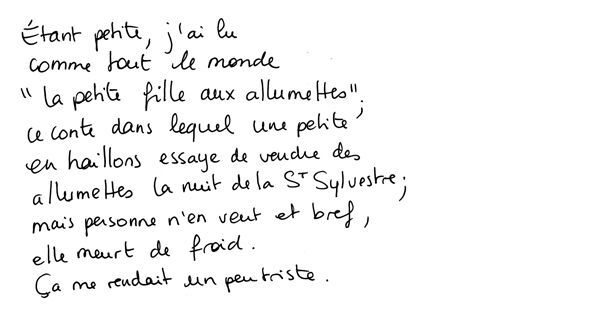 Étant petite, j'ai lu
comme tout le monde
"la petite fille aux allumettes",
ce conte dans lequel une petite
en haillons essaye de vendre des
allumettes la nuit de la St Sylvestre ;
mais personne n'en veut et bref,
elle meurt de froid.
Ça me rendait un peu triste.